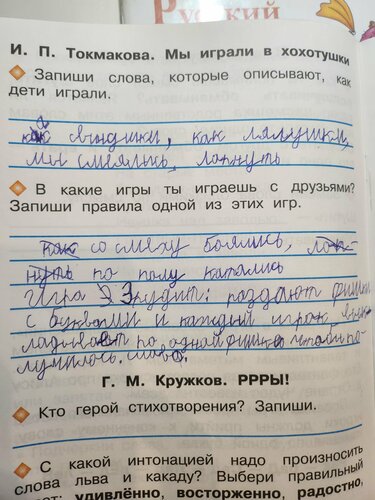 Русский
И. П. Токмакова. Мы играли в хохотушки
Запиши слова, которые описывают, как
дети играли.
как свиндики, как лялушки,
мы смеялись, лопнуть
В какие игры ты играешь с друзьями?
Запиши правила одной из этих игр.
как со смеху боялись, лоп-
нуть по полу катались
Игра Э Эрудит: раздают фишки
с буквами и каждый игрок вык-
ладывает по одной фишке чтобы по-
лучилось слово.
Г. М. Кружков. РРРЫ!
Кто герой стихотворения? Запиши.
С какой интонацией надо произносить
слова льва и какаду? Выбери правильный
удивлённо, восторженно, радостно,